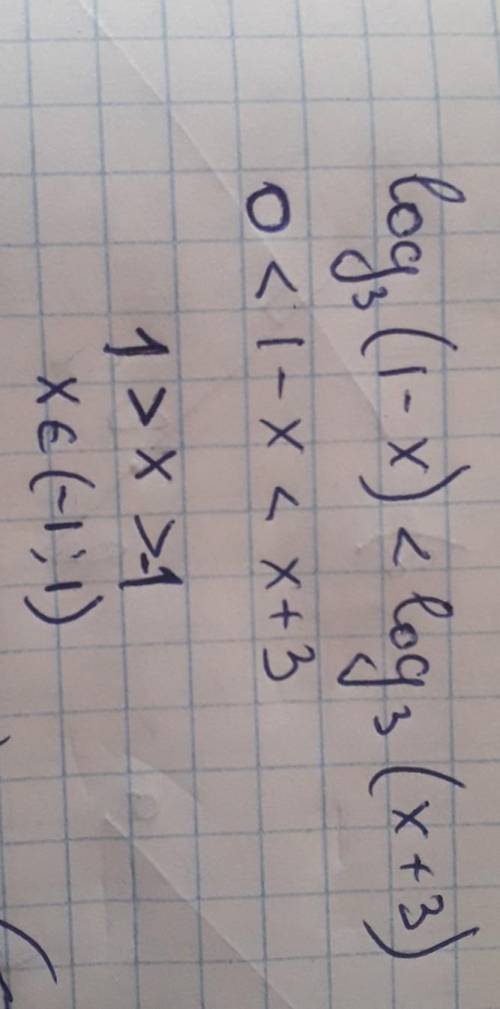 log₃(1-x) < log₃(x+3)
0 < 1-x < x+3
1 > x > -1
x ∈ (-1; 1)